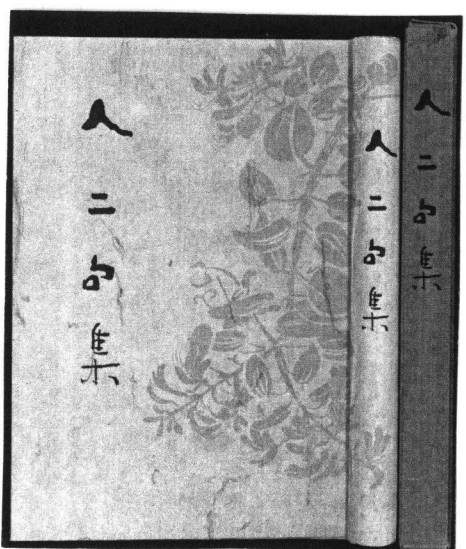 人二句集
人二句集
人二句集